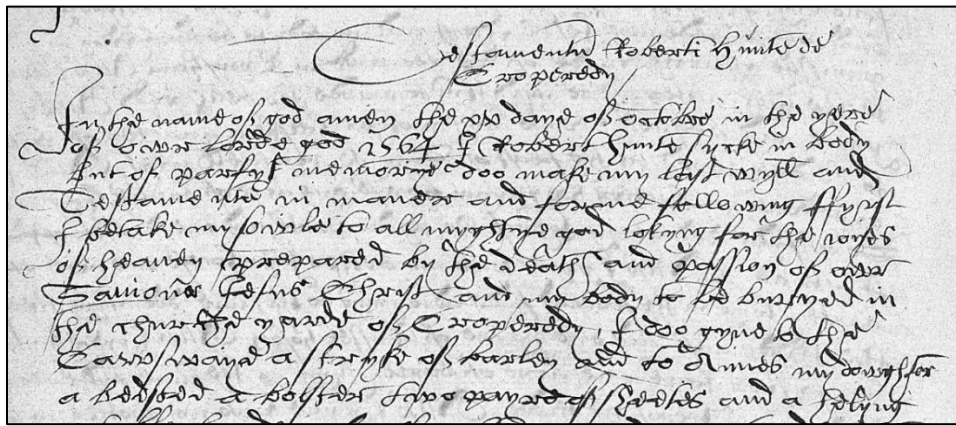 Testamentu Roberti Hunte de
Croperedy
In the name of god amen the xv daye of octobre in the yere
of owr lorde god 1564 I Robert Hunte sycke in body
but of parfyt memorye doo make my last wyll and
Testamente in maner and forme following ffyrst
I betake my sowle to all myghtye god lokyng for the ioyes
of heaven prepared by the death and passion of owr
Saviour Jesus Christ and my body to be buryed in
the churche yarde of Croperedy, I doo gyve to the
Cawswaye a stryke of barley and to Annes my dowghter
a bedsted a bolster two payre of sheetes and a helyng